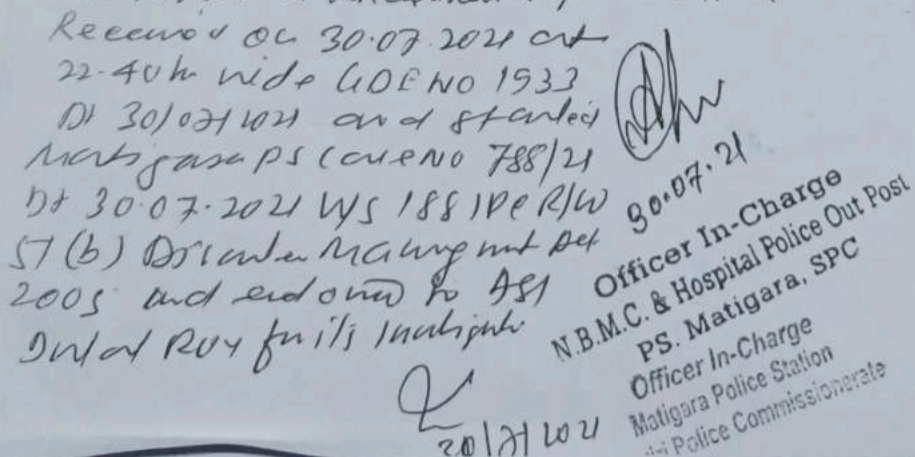 Received on 30.07.2021 at
22.40 h vide GDE NO 1933
Dt 30/07/2021 and started
Matigara PS Case NO 788/21
Dt 30.07.2021 U/S 188 IPC R/W
51 (b) Disaster Management Act
2005 and endorsed to ASI
Roy for its
30.07.21
Officer In-Charge
N.B.M.C. & Hospital Police Out Post
PS. Matigara, SPC
Officer In-Charge
Matigara Police Station
Police Commissionerate
30/7/2021